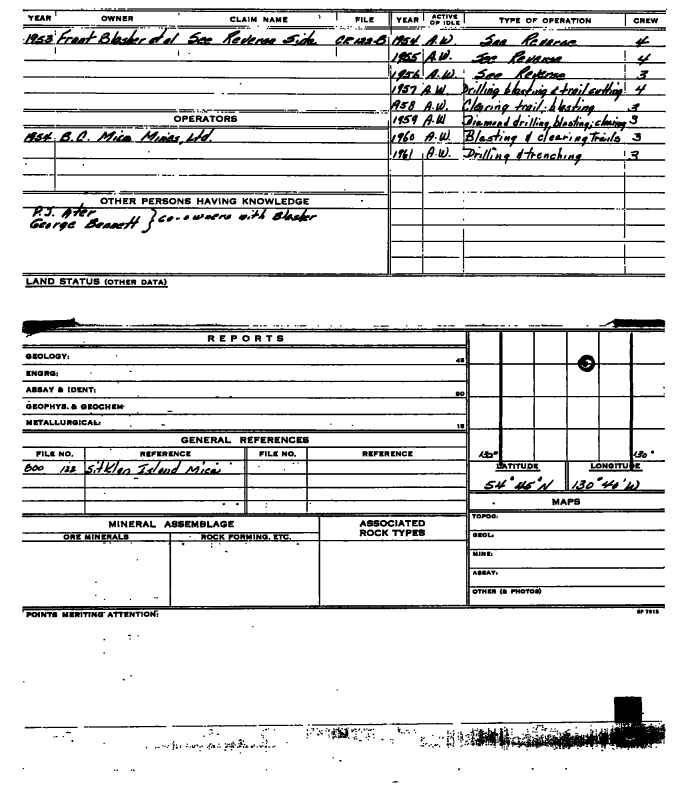 YEAR OWNER CLAIM NAME FILE
1953 Front Blasher et al See Reverse Side CR 122-B
OPERATORS
1954 B.C. Mica Mines, Ltd.
OTHER PERSONS HAVING KNOWLEDGE
P.J. Ater
George Bennett } co-owners with Blasher
YEAR ACTIVE OF IDLE TYPE OF OPERATION CREW
1954 A.W. See Reverse 4
1955 A.W. See Reverse 4
1956 A.W. See Reverse 3
1957 A.W. Drilling blasting & trail cutting 4
1958 A.W. Clearing trail; blasting 3
1959 A.W Diamond drilling, blasting; clearing 3
1960 A.W. Blasting & clearing trails 3
1961 A.W. Drilling & trenching 3
LAND STATUS (OTHER DATA)
REPORTS
GEOLOGY: 45
ENGRG:
ASSAY & IDENT: 30
GEOPHYS. & GEOCHEM
METALLURGICAL: 15
GENERAL REFERENCES
FILE NO. REFERENCE FILE NO. REFERENCE
800 122 Sitklan Island Mica
130° 130°
LATITUDE LONGITUDE
54° 45' N 130° 40' W
MAPS
TOPOG:
GEOL:
MINE:
ASSAY:
OTHER (& PHOTOS)
MINERAL ASSEMBLAGE
ORE MINERALS ROCK FORMING, ETC.
ASSOCIATED
ROCK TYPES
POINTS MERITING ATTENTION:
SP 7915